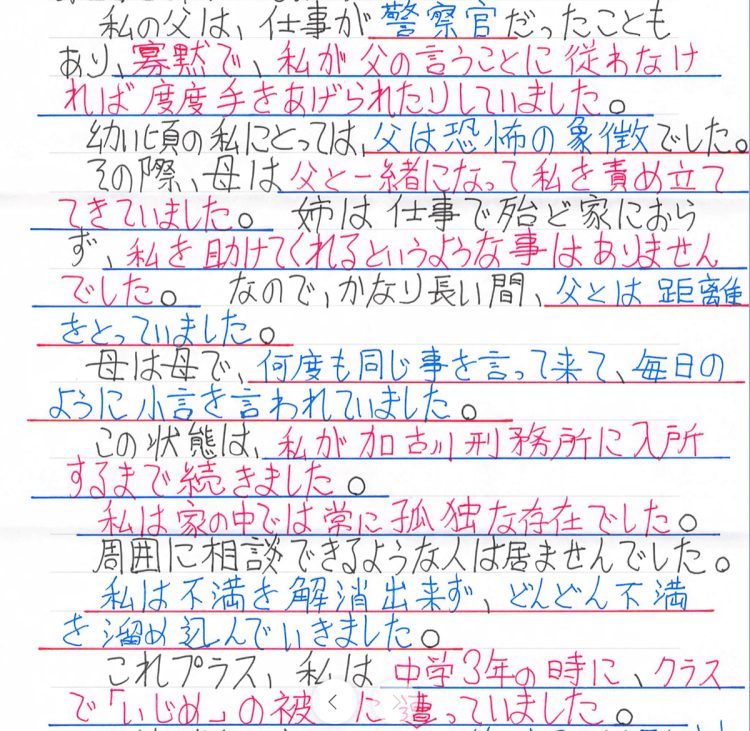 私の父は、仕事が警察官だったことも
あり、寡黙で、私が父の言うことに従わなけ
れば度度手をあげられたりしていました。
幼い頃の私にとっては、父は恐怖の象徴でした。
その際、母は父と一緒になって私を責め立て
てきていました。姉は仕事で殆ど家におら
ず、私を助けてくれるというような事はありません
でした。なので、かなり長い間、父とは距離
をとっていました。
母は母で、何度も同じ事を言って来て、毎日の
ように小言を言われていました。
この状態は、私が加古川刑務所に入所
するまで続きました。
私は家の中では常に孤独な存在でした。
周囲に相談できるような人は居ませんでした。
私は不満を解消出来ず、どんどん不満
を溜め込んでいきました。
これプラス、私は中学3年の時に、クラス
で「いじめ」の被に遭っていました。